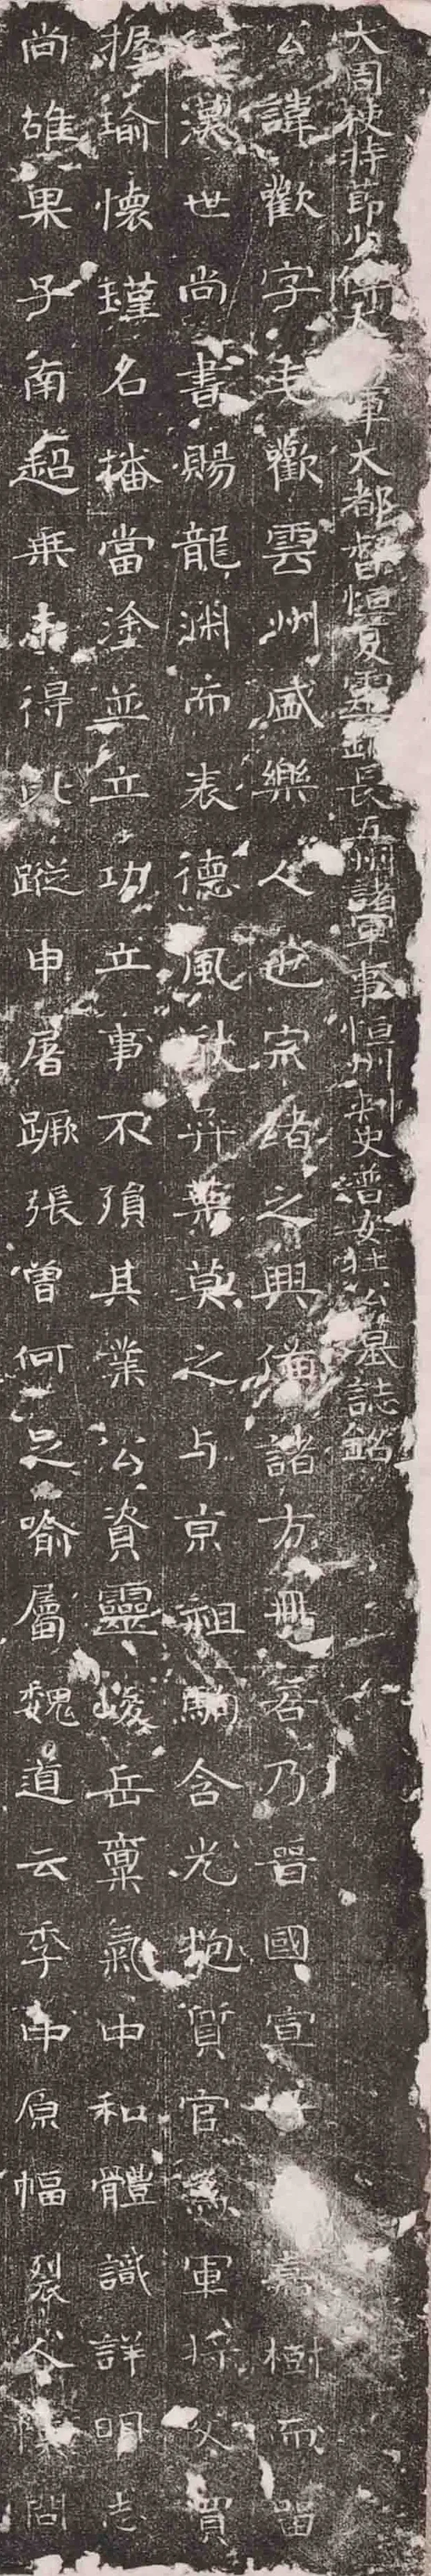 大周使持節少傅大軍大都督恒夏靈銀長五州諸軍事恒州刺史普安壯公墓誌銘
公諱歡字毛歡雲州盛樂人也宗緒之興備諸方冊若乃晉國宣子嘉樹而留
漢世尚書賜龍渊而表德風猷弈葉莫之与京祖駒含光抱質官為軍將父買
握瑜懷瑾名播當塗並立功立事不殞其業公資靈峻岳稟氣中和體識詳明志
尚雄果子南超乗未得比蹤申屠蹶張曾何足喻屬魏道云季中原幅裂人懷問